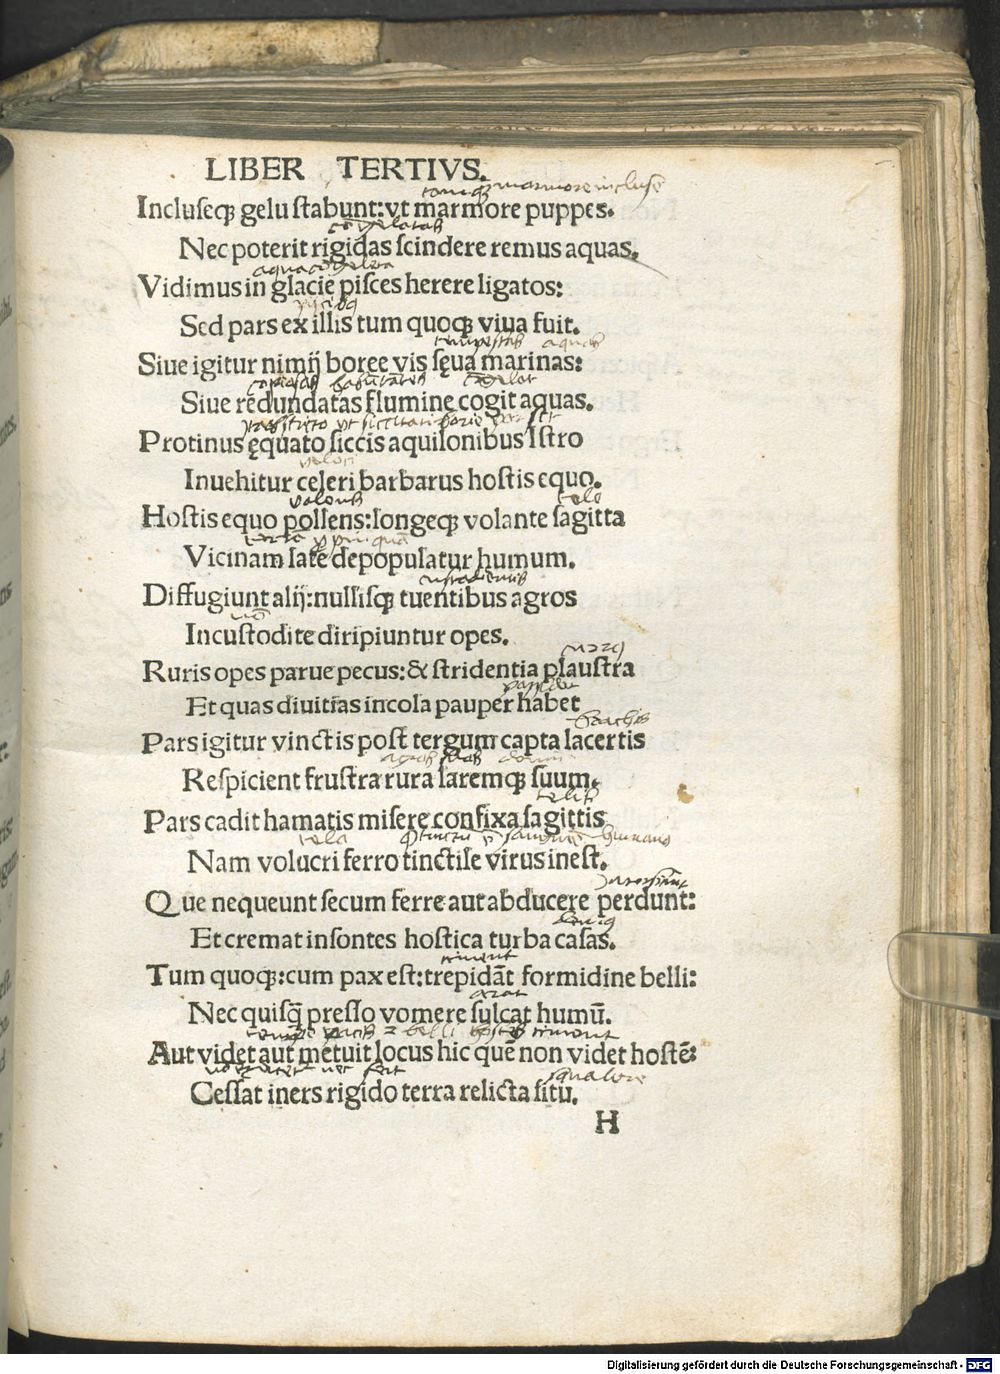 LIBER TERTIVS.
Incluseqꝫ gelu stabunt: vt marmore puppes.
congelatas
Nec poterit rigidas scindere remus aquas.
aqua congelata
Vidimus in glacie pisces herere ligatos:
Sed pars ex illis tum quoqꝫ viua fuit.
tempestas aquas
Siue igitur nimij boree vis sęua marinas:
copiosas congelat
Siue redundatas flumine cogit aquas.
Protinus ęquato siccis aquilonibus Istro
veloci
Inuehitur celeri barbarus hostis equo.
tela
Hostis equo pollens: longeqꝫ volante sagitta
Vicinam late depopulatur humum.
custodientibus
Diffugiunt alij: nullisqꝫ tuentibus agros
Incustodite diripiuntur opes.
Ruris opes parue pecus: & stridentia plaustra
Et quas diuitias incola pauper habet
brachijs
Pars igitur vinctis post tergum capta lacertis
agros suas domum
Respicient frustra rura laremqꝫ suum.
telis
Pars cadit hamatis misere confixa sagittis
tela humano
Nam volucri ferro tinctile virus inest.
Que nequeunt secum ferre aut abducere perdunt:
Et cremat insontes hostica turba casas.
timent
Tum quoqꝫ: cum pax est: trepidāt formidine belli:
arat
Nec quisq̄ presso vomere sulcat humū.
tempore pacis belli hostes timent
Aut videt aut metuit locus hic quē non videt hostē:
squalore
Cessat iners rigido terra relicta situ.
H
Digitalisierung gefördert durch die Deutsche Forschungsgemeinschaft - DFG